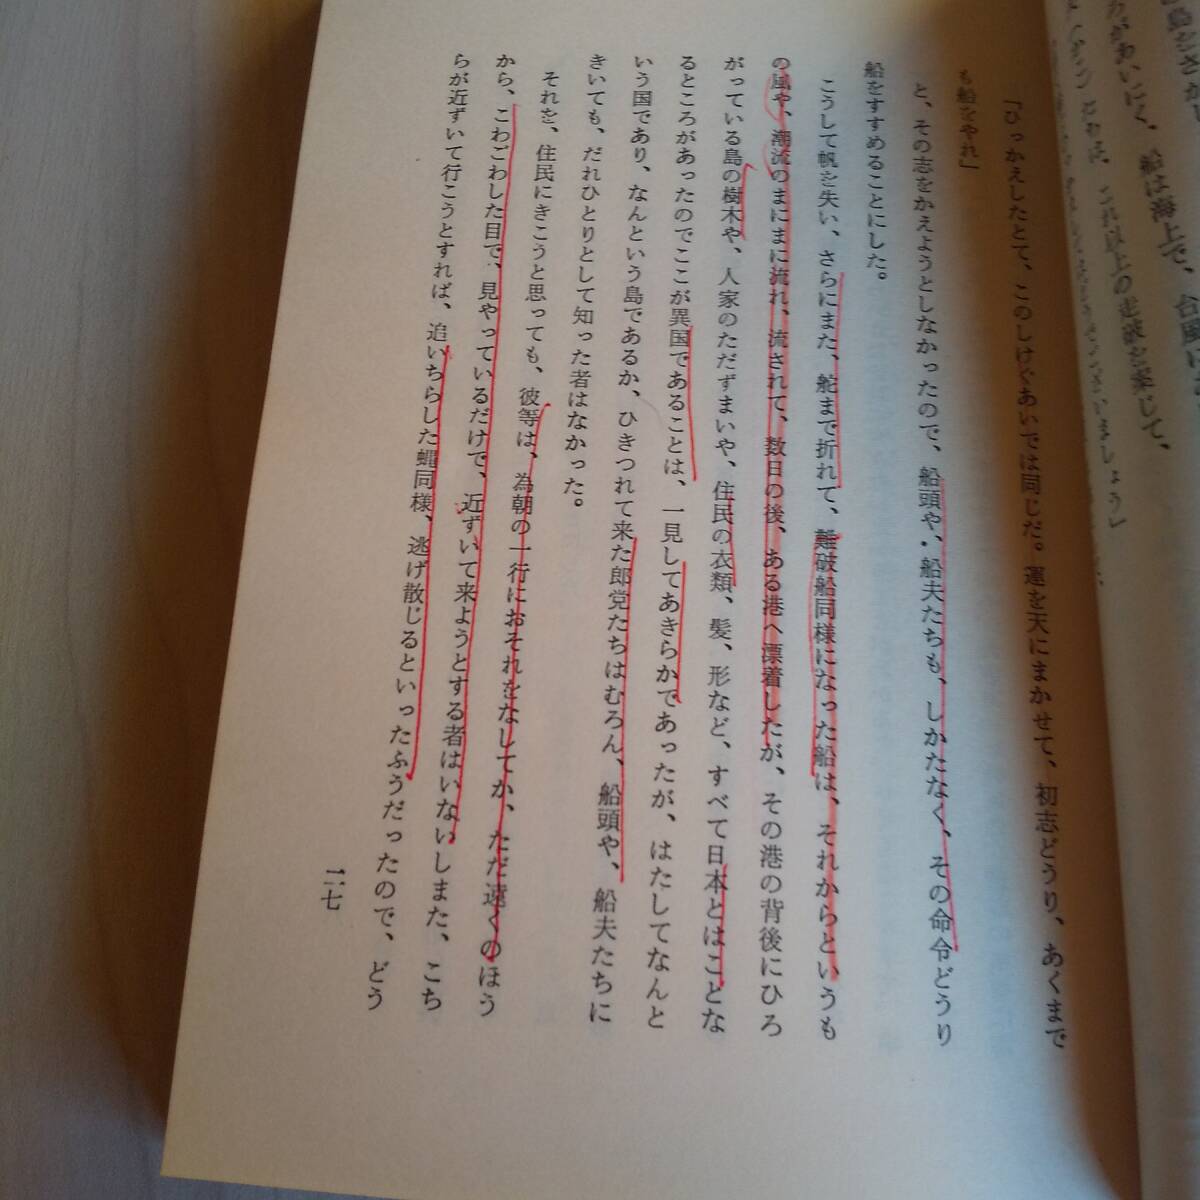 船は海上で、台風に
これ以上の走破を案じて、
「ひっかえしたとて、このしけぐあいでは同じだ。運を天にまかせて、初志どうり、あくまで
も船をやれ」
と、その志をかえようとしなかったので、船頭や・船夫たちも、しかたなく、その命令どうり
船をすすめることにした。
こうして帆を失い、さらにまた、舵まで折れて、難破船同様になった船は、それからというも
の風や、潮流のまにまに流れ、流されて、数日の後、ある港へ漂着したが、その港の背後にひろ
がっている島の樹木や、人家のただずまいや、住民の衣類、髪、形など、すべて日本とはことな
るところがあったのでここが異国であることは、一見してあきらかであったが、はたしてなんと
いう国であり、なんという島であるか、ひきつれて来た郎党たちはむろん、船頭や、船夫たちに
きいても、だれひとりとして知った者はなかった。
それを、住民にきこうと思っても、彼等は、為朝の一行におそれをなしてか、ただ遠くのほう
から、こわごわした目で、見やっているだけで、近ずいて来ようとする者はいないしまた、こち
らが近ずいて行こうとすれば、追いちらした蝿同様、逃げ散じるといったふうだったので、どう
二七